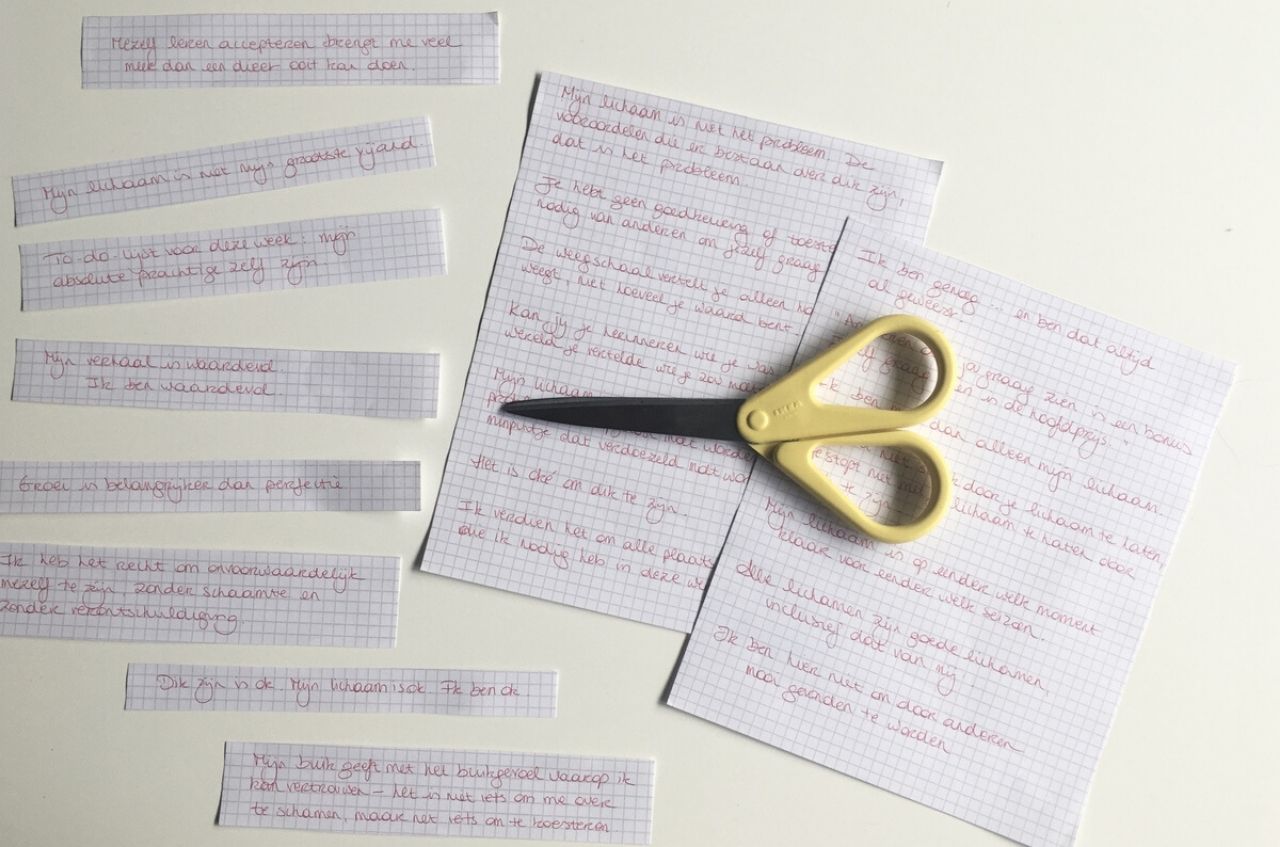 Mezelf leren accepteren brengt me veel
meer dan een dieet ooit kan doen.
Mijn lichaam is niet mijn grootste vijand
To-do-lijst voor deze week: mijn
absolute prachtige zelf zijn
Mijn verhaal is waardevol.
Ik ben waardevol.
Groei is belangrijker dan perfectie
Ik heb het recht om onvoorwaardelijk
mezelf te zijn, zonder schaamte en
zonder verontschuldiging.
Dik zijn is ok. Mijn lichaam is ok. Ik ben ok
Mijn buik geeft met het buikgevoel waarop ik
kan vertrouwen - het is niet iets om me over
te schamen, maar net iets om te koesteren.
Mijn lichaam is niet het probleem. De
vooroordelen die er bestaan over dik zijn,
dat is het probleem.
Je hebt geen goedkeuring of
nodig van anderen om jezelf graag
De weegschaal vertelt je alleen
weegt, niet hoeveel je waard bent.
Kan jij je herinneren wie je
wereld je vertelde wie je zou
Mijn lichaam
minpuntje dat verdoezeld moet
Het is oké om dik te zijn.
Ik verdien het om alle plaats
die ik nodig heb in deze
Ik ben genoeg ... en ben dat altijd
al geweest
je graag zien is een bonus
graag en is de hoofdprijs."
Ik ben dan alleen mijn lichaam.
niet door je lichaam te haten,
stopt niet met lichaam te haten door
te zijn
Mijn lichaam is op eender welk moment
klaar voor eender welk seizoen.
Alle lichamen zijn goede lichamen,
inclusief dat van mij.
Ik ben hier niet om door anderen
mooi gevonden te worden